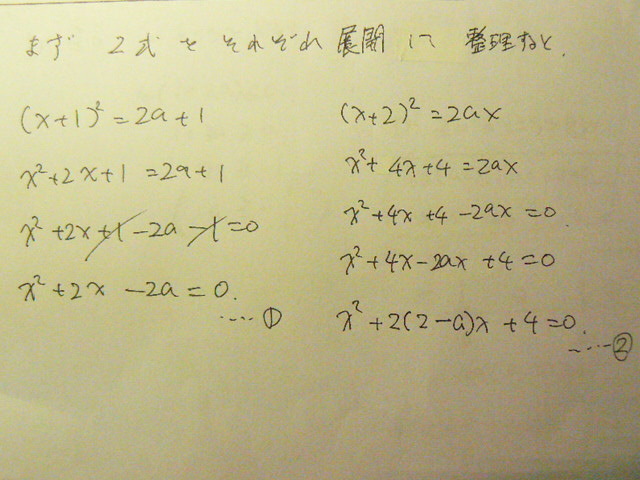 まず 2式をそれぞれ 展開して 整理すると、
(x+1)² = 2a+1
x²+2x+1 = 2a+1
x²+2x+1-2a-1=0
x²+2x -2a = 0.
‥‥①
(x+2)² = 2ax
x²+4x+4 = 2ax
x²+4x+4-2ax = 0
x²+4x-2ax+4=0
x²+2(2-a)x+4=0.
‥‥②